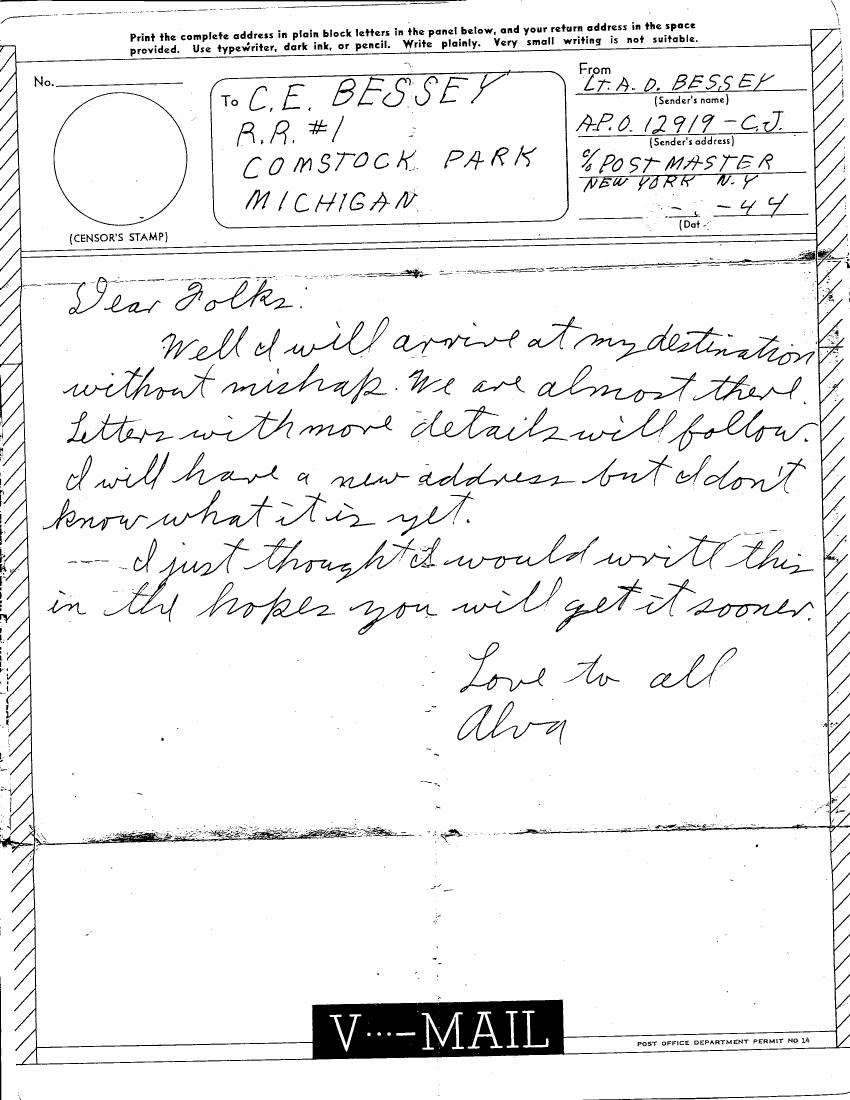 Print the complete address in plain block letters in the panel below, and your return address in the space
provided. Use typewriter, dark ink, or pencil. Write plainly. Very small writing is not suitable.
No.
(CENSOR'S STAMP)
To C.E. BESSEY
R.R. #1
COMSTOCK PARK
MICHIGAN
From
LT. A. D. BESSEY
(Sender's name)
A.P.O. 12919-C.J.
(Sender's address)
% POSTMASTER
NEW YORK N.Y
- -44
(Dat
Dear Folks:
Well I will arrive at my destination
without mishap. We are almost there.
Letters with more details will follow.
I will have a new address but I don't
know what it is yet.
— I just thought I would write this
in the hopes you will get it sooner.
Love to all
Alva
V···—MAIL
POST OFFICE DEPARTMENT PERMIT NO 14